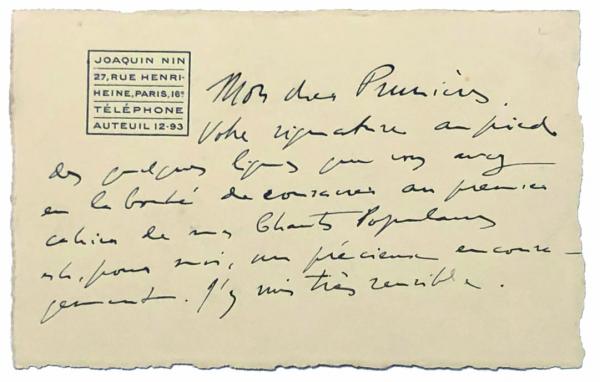 JOAQUIN NIN
27, RUE HENRI-
HEINE, PARIS, 16ᵉ
TÉLÉPHONE
AUTEUIL 12-93
Mon cher Prunières,
Votre signature au pied
des quelques lignes que vous avez
eu la bonté de consacrer au premier
cahier de mes Chants Populaires
est, pour moi, un précieux encoura-
gement. J'y suis très sensible.